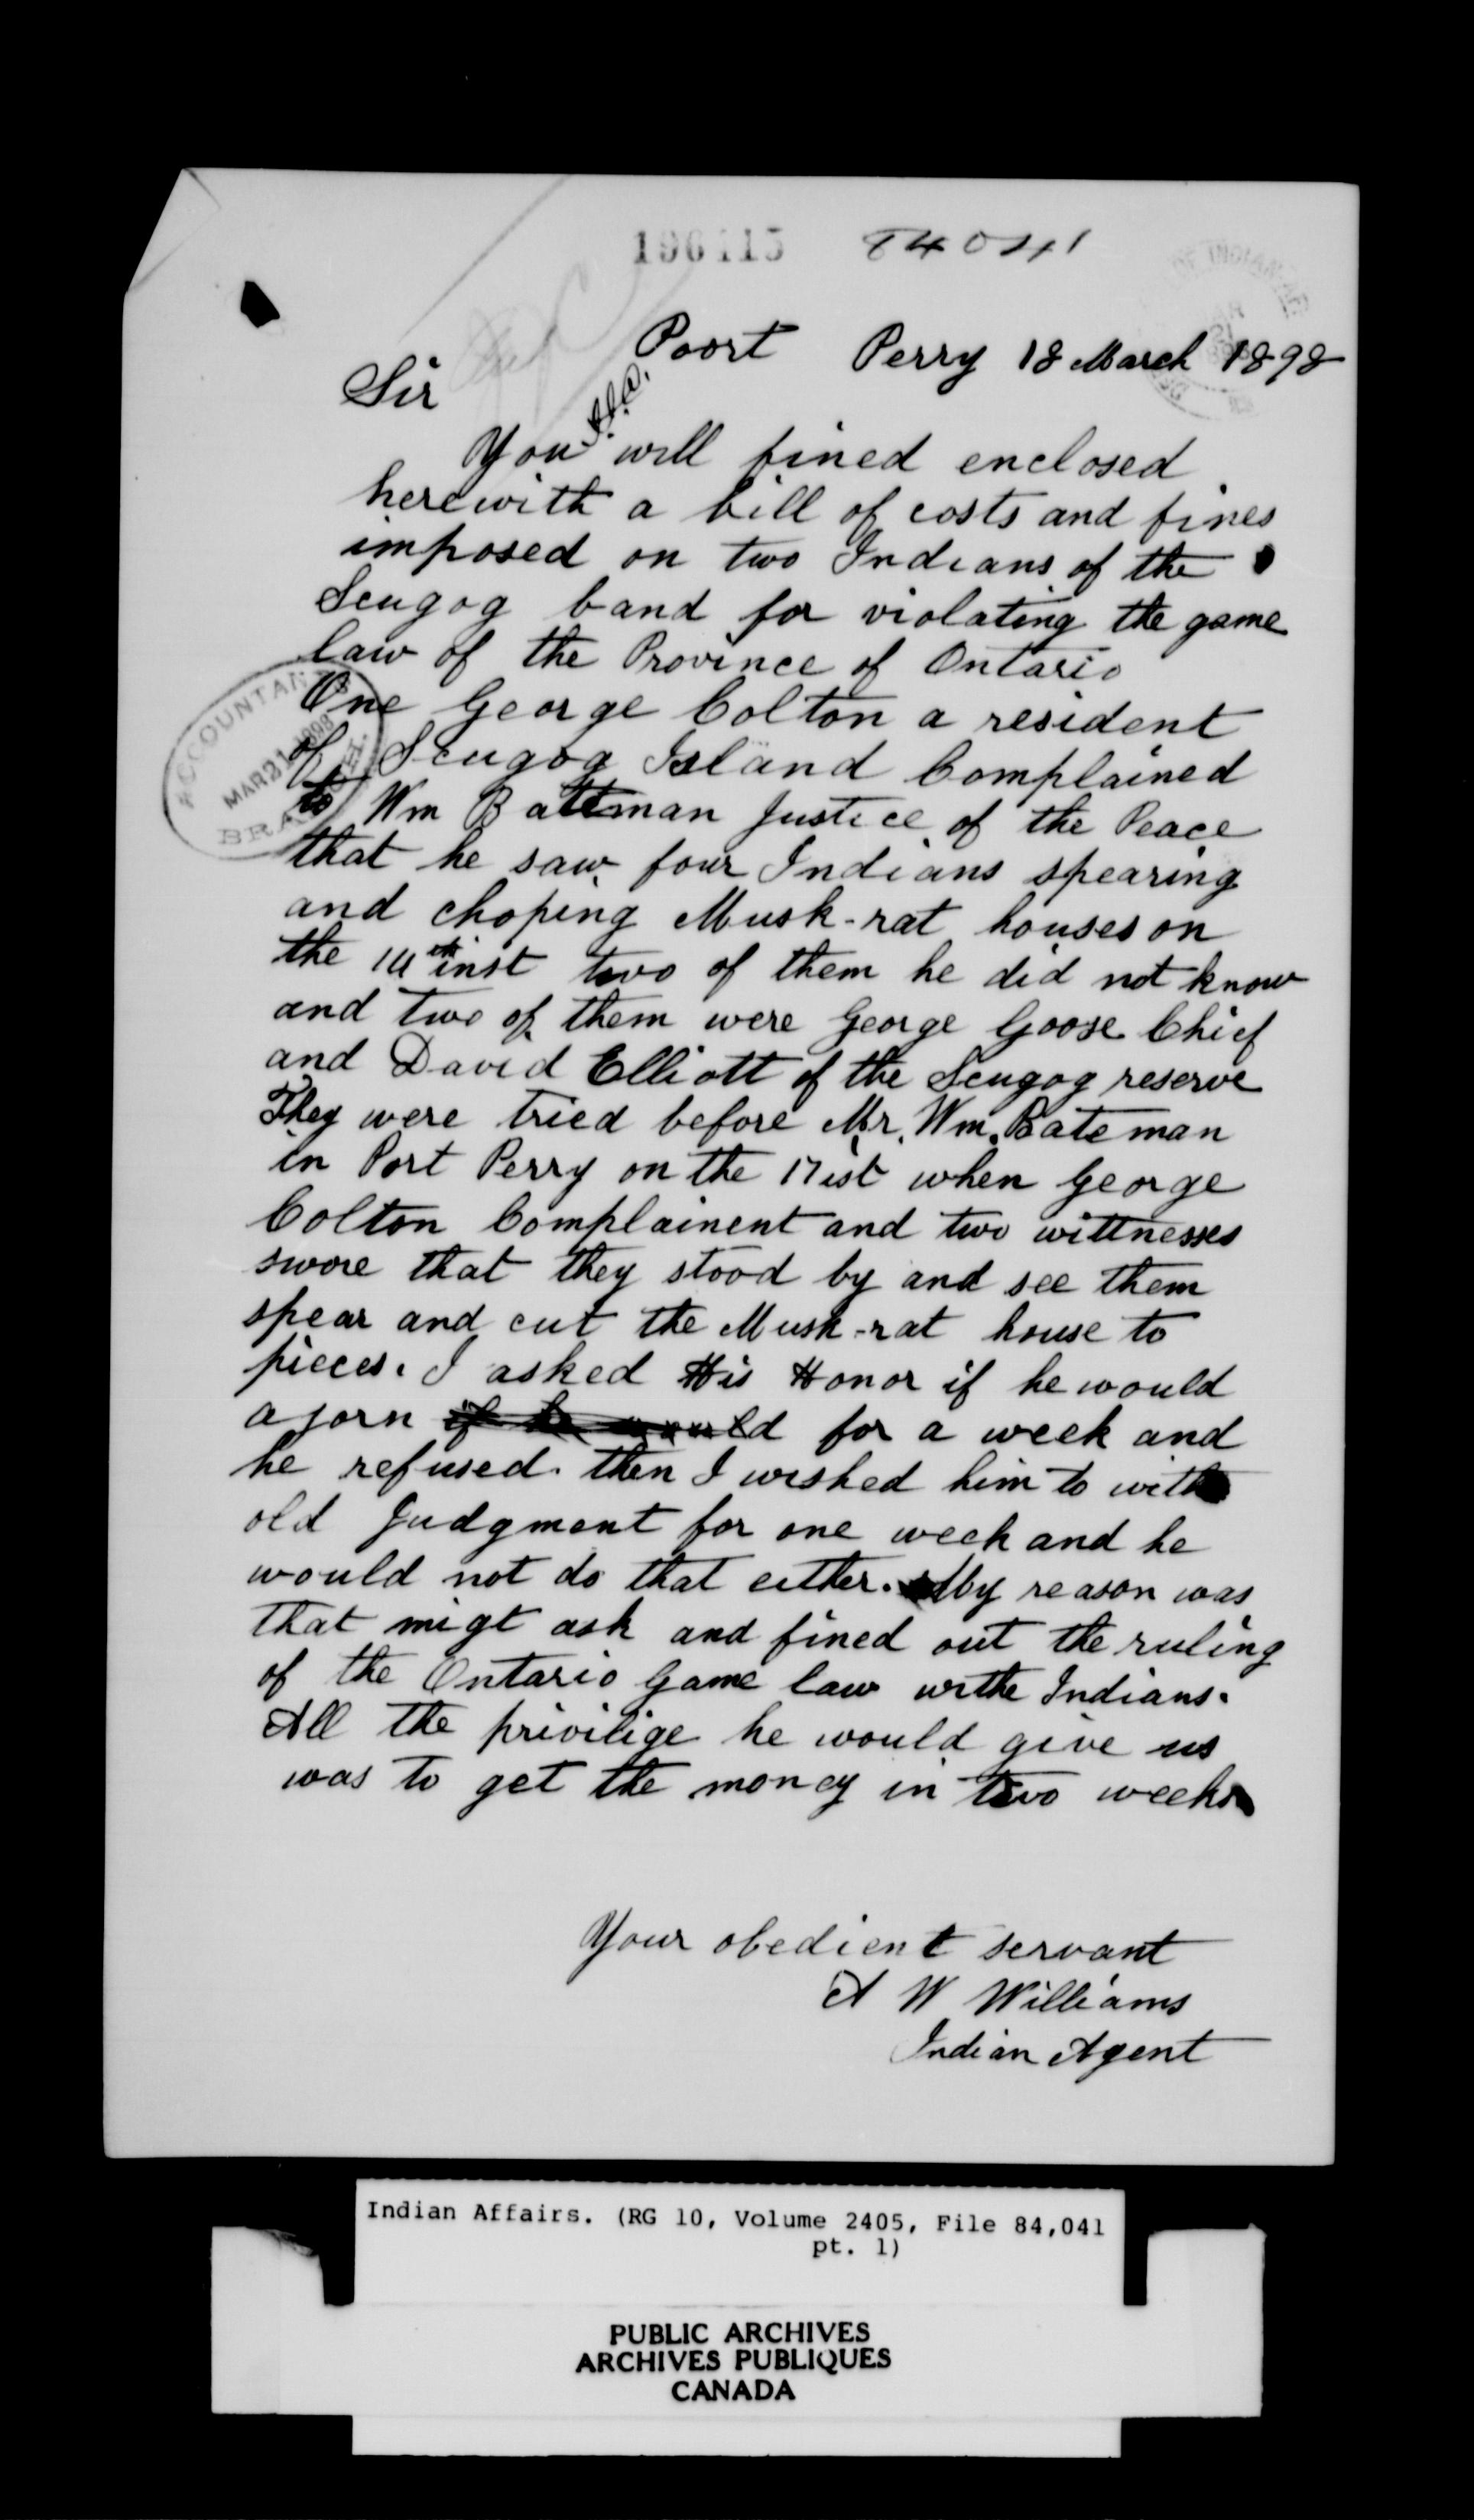 196115 84041
Poort Perry 18 March 1898
Sir
You will fined enclosed
herewith a bill of costs and fines
imposed on two Indians of the
Scugog band for violating the game
law of the Province of Ontario
One George Colton a resident
of Scugog Island Complained
to Wm Bateman Justice of the Peace
that he saw four Indians spearing
and choping Musk-rat houses on
the 14th inst two of them he did not know
and two of them were George Goose Chief
and David Elliott of the Scugog reserve
They were tried before Mr. Wm. Bateman
in Port Perry on the 17 ist when George
Colton Complainent and two wittnesses
swore that they stood by and see them
spear and cut the Musk-rat house to
pieces. I asked His Honor if he would
ajorn if he would for a week and
he refused. then I wished him to with
old Judgment for one week and he
would not do that either. My reason was
that migt ask and fined out the ruling
of the Ontario Game law withe Indians.
All the privilige he would give us
was to get the money in two weeks
Your obedient servant
A W Williams
Indian Agent
ACCOUNTANT'S
MAR 21 1898
BRANCH
Indian Affairs. (RG 10, Volume 2405, File 84,041
pt. 1)
PUBLIC ARCHIVES
ARCHIVES PUBLIQUES
CANADA